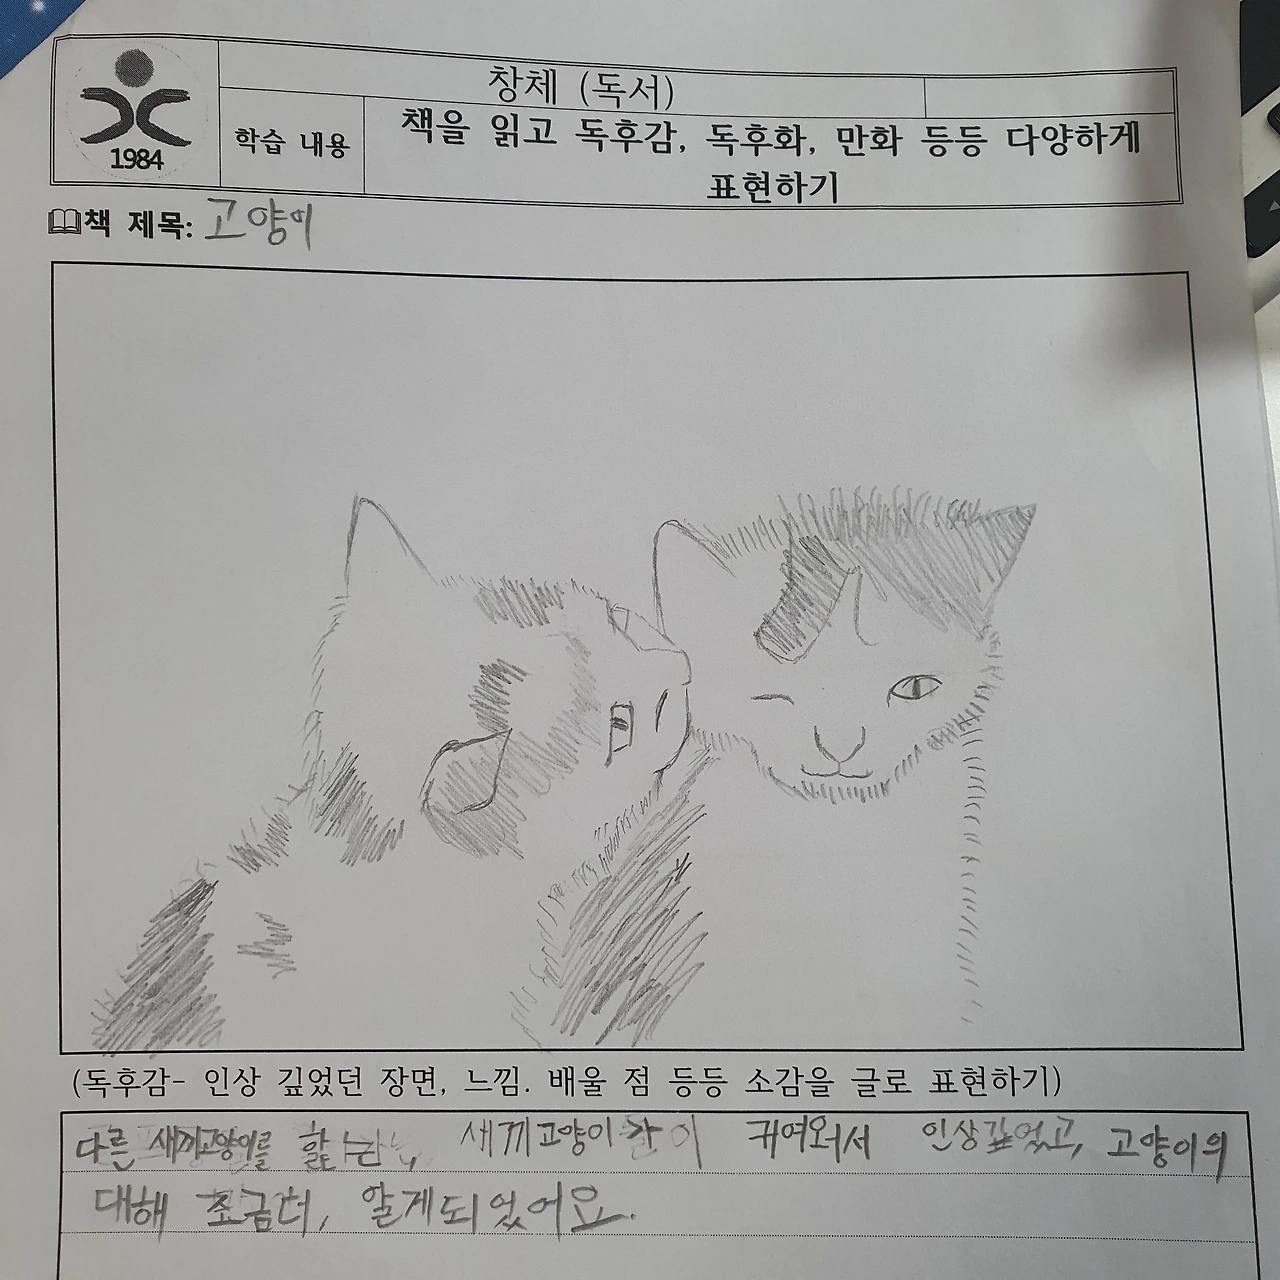 창체 (독서)
1984
학습 내용
책을 읽고 독후감, 독후화, 만화 등등 다양하게
표현하기
책 제목: 고양이
(독후감- 인상 깊었던 장면, 느낌. 배울 점 등등 소감을 글로 표현하기)
다른 새끼고양이를 핥는, 새끼고양이 귀여워서 인상깊었고, 고양이의
대해 조금더, 알게되었어요.